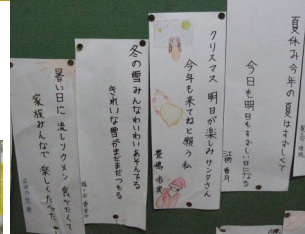 夏休み今年の夏はすずしくて
今日も明日もすずしい日になる
クリスマス 明日が楽しみサンタさん
今年も来てねと願う私
冬の雪みんなわいわいあそんでる
きれいな雪がまだまだつもる
暑い日に 流しソウメン 食べたくて
家族みんなで 楽しくたべた